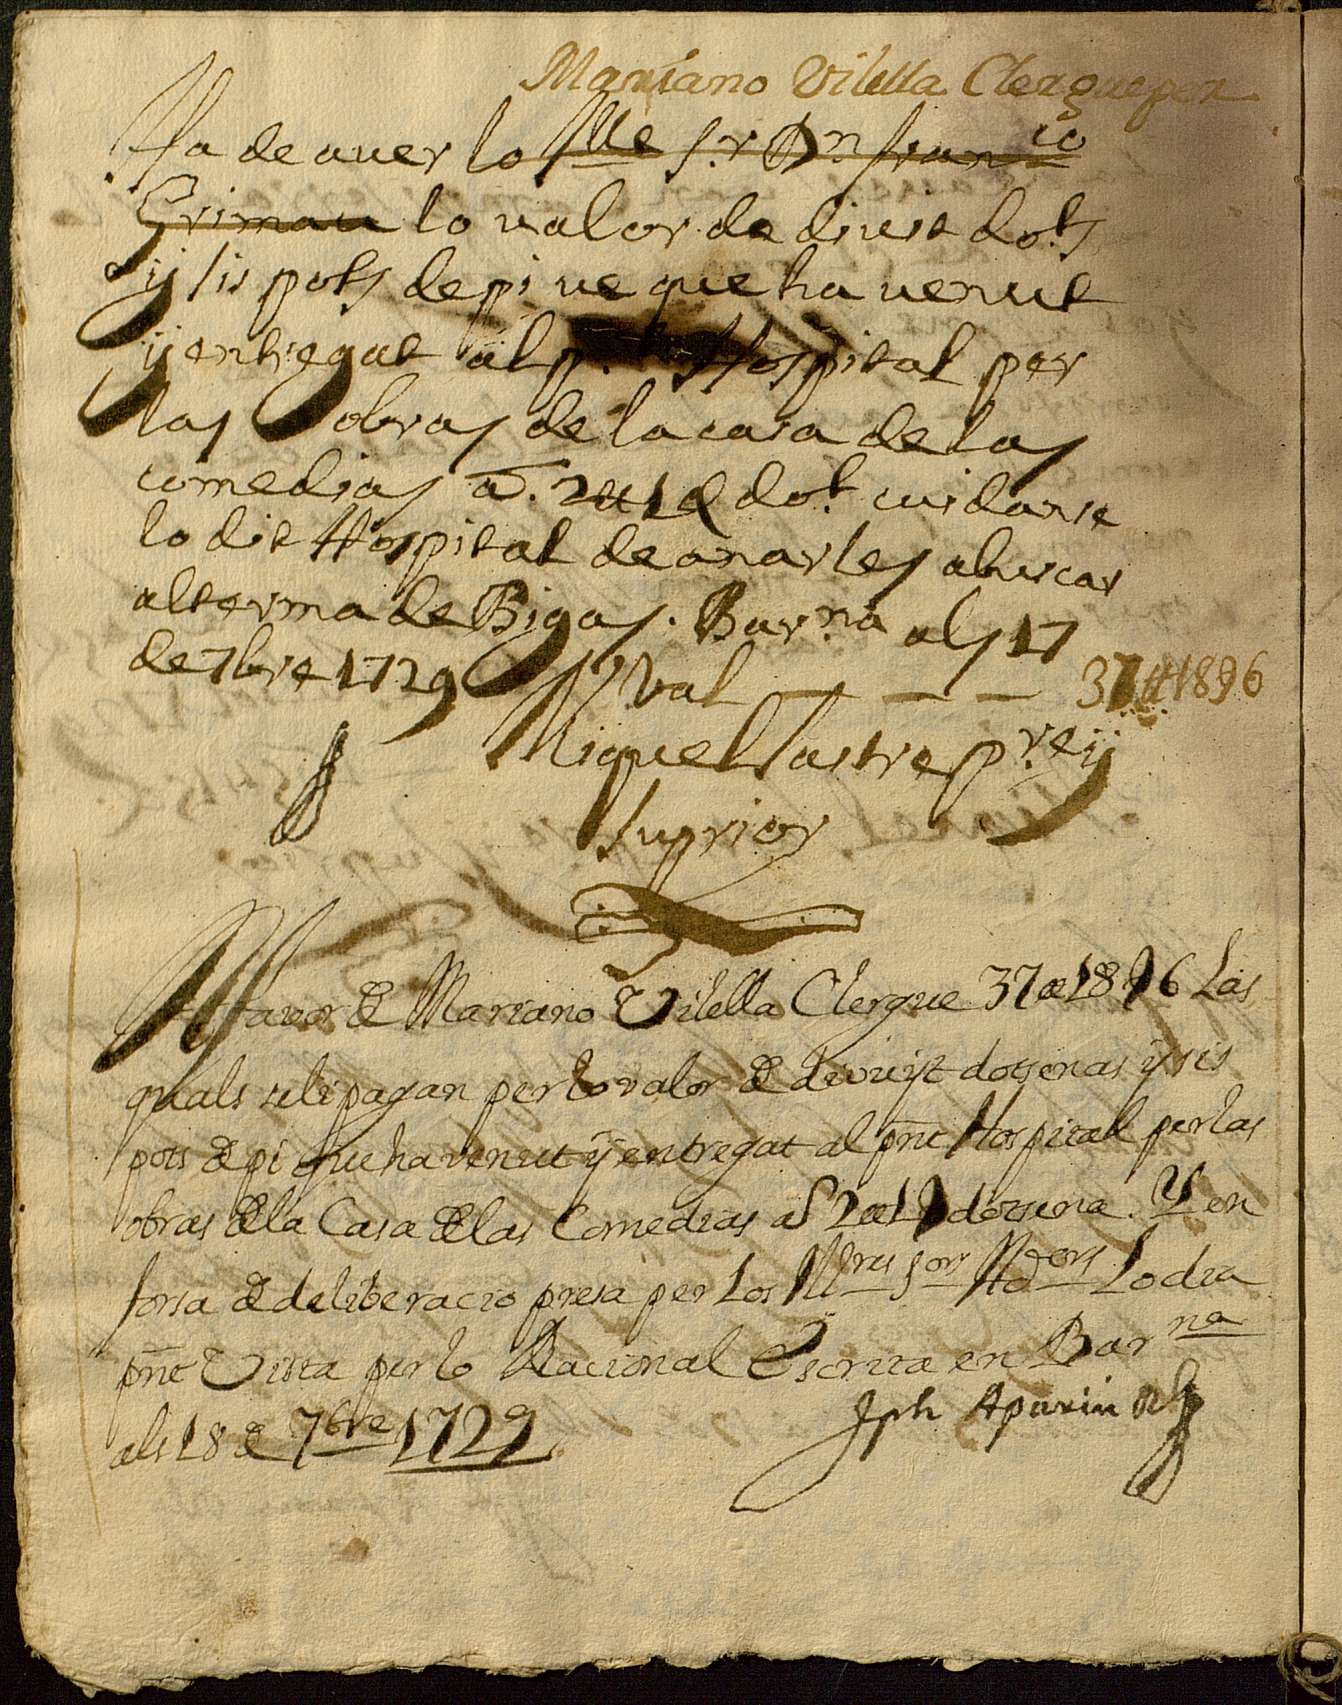 Mariano Vilella Clergue per
Ha de aver lo Ille Sr Dn Franco
Grimau lo valor de divuit dots
y sis pots de pi ve que ha venut
y entregat al p. Hospital per
las obras de la casa de las
comedias a 2 ₶ 1 dot. cuidarse
lo dit Hospital de anarles a buscar
al terma de Bigas. Barna als 17
de 7bre 1729 Val — — — 37 ₶ 18 6
Miquel Sastre pre y
Suprior
A favor de Mariano Vilella Clergue 37 ₶ 18 6 Las
quals seli pagan per lo valor de divuyt dotsenas y sis
pots de pi que ha venut y entregat al pnt Hospital per las
obras de la Casa de las Comedias a 2 ₶ 1 dotsena. Y en
forsa de deliberacio presa per Los Mrs Sors Adors Lo dia
pnt Vista per lo Racional Escrita en Barna
als 18 de 7bre 1729
Jph Aparici